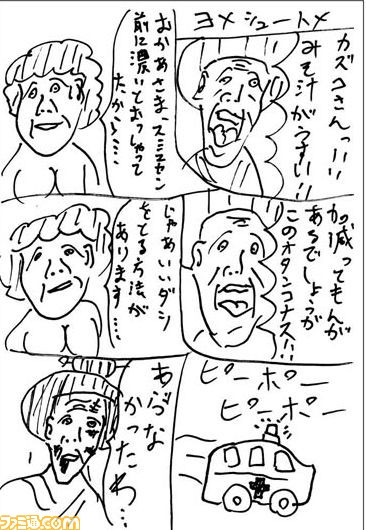 ヨメシュートメ
カズコさんっ!!!
みそ汁がうすい!!
おかあさまスミマセン
前に濃いとおっしゃって
たから…
加減ってもんが
あるでしょうが
このオタンコナス!!
じゃあいいダシ
をとる方法が
あります…
ピーポー
ピーポー
あぶな
かったわ…
ファミ通.com